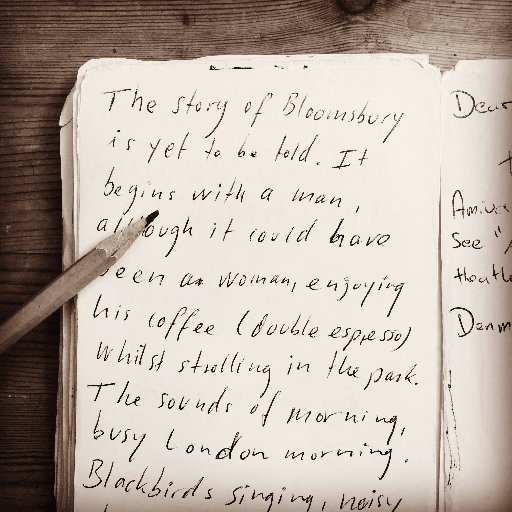 The story of Bloomsbury
is yet to be told. It
begins with a man,
although it could have
been a woman, enjoying
his coffee (double espresso)
whilst strolling in the park.
The sounds of morning,
busy London morning.
Blackbirds singing, noisy
Dear
See